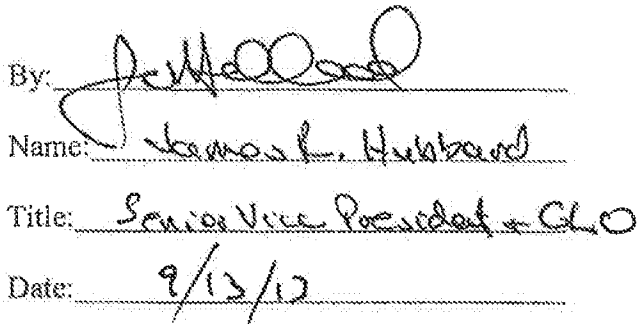 By:
Name: James L. Hubbard
Title: Senior Vice President + CLO
Date: 9/13/13